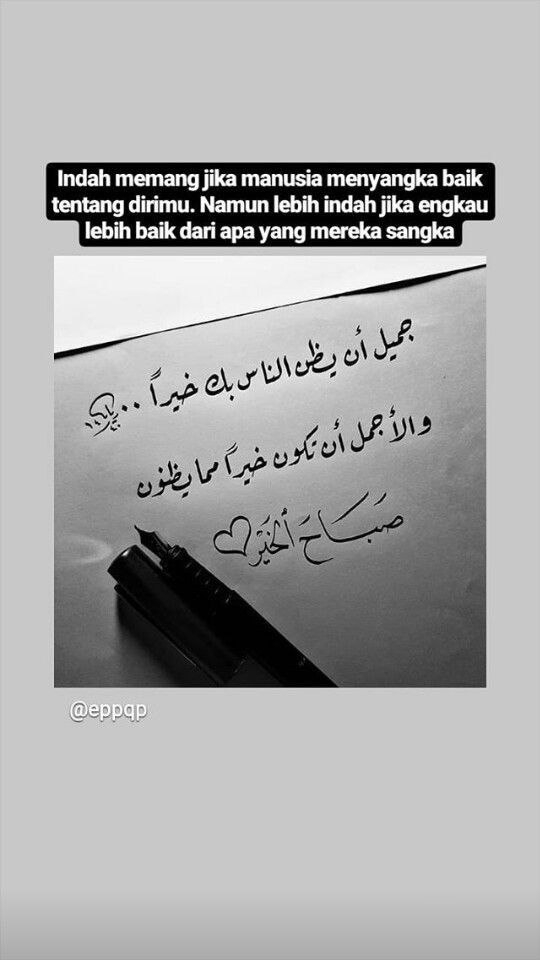 Indah memang jika manusia menyangka baik
tentang dirimu. Namun lebih indah jika engkau
lebih baik dari apa yang mereka sangka
جميل أن يظن الناس بك خيراً ..
والأجمل أن تكون خيراً مما يظنون
صَبَاحَ ألخَيْر
@eppqp